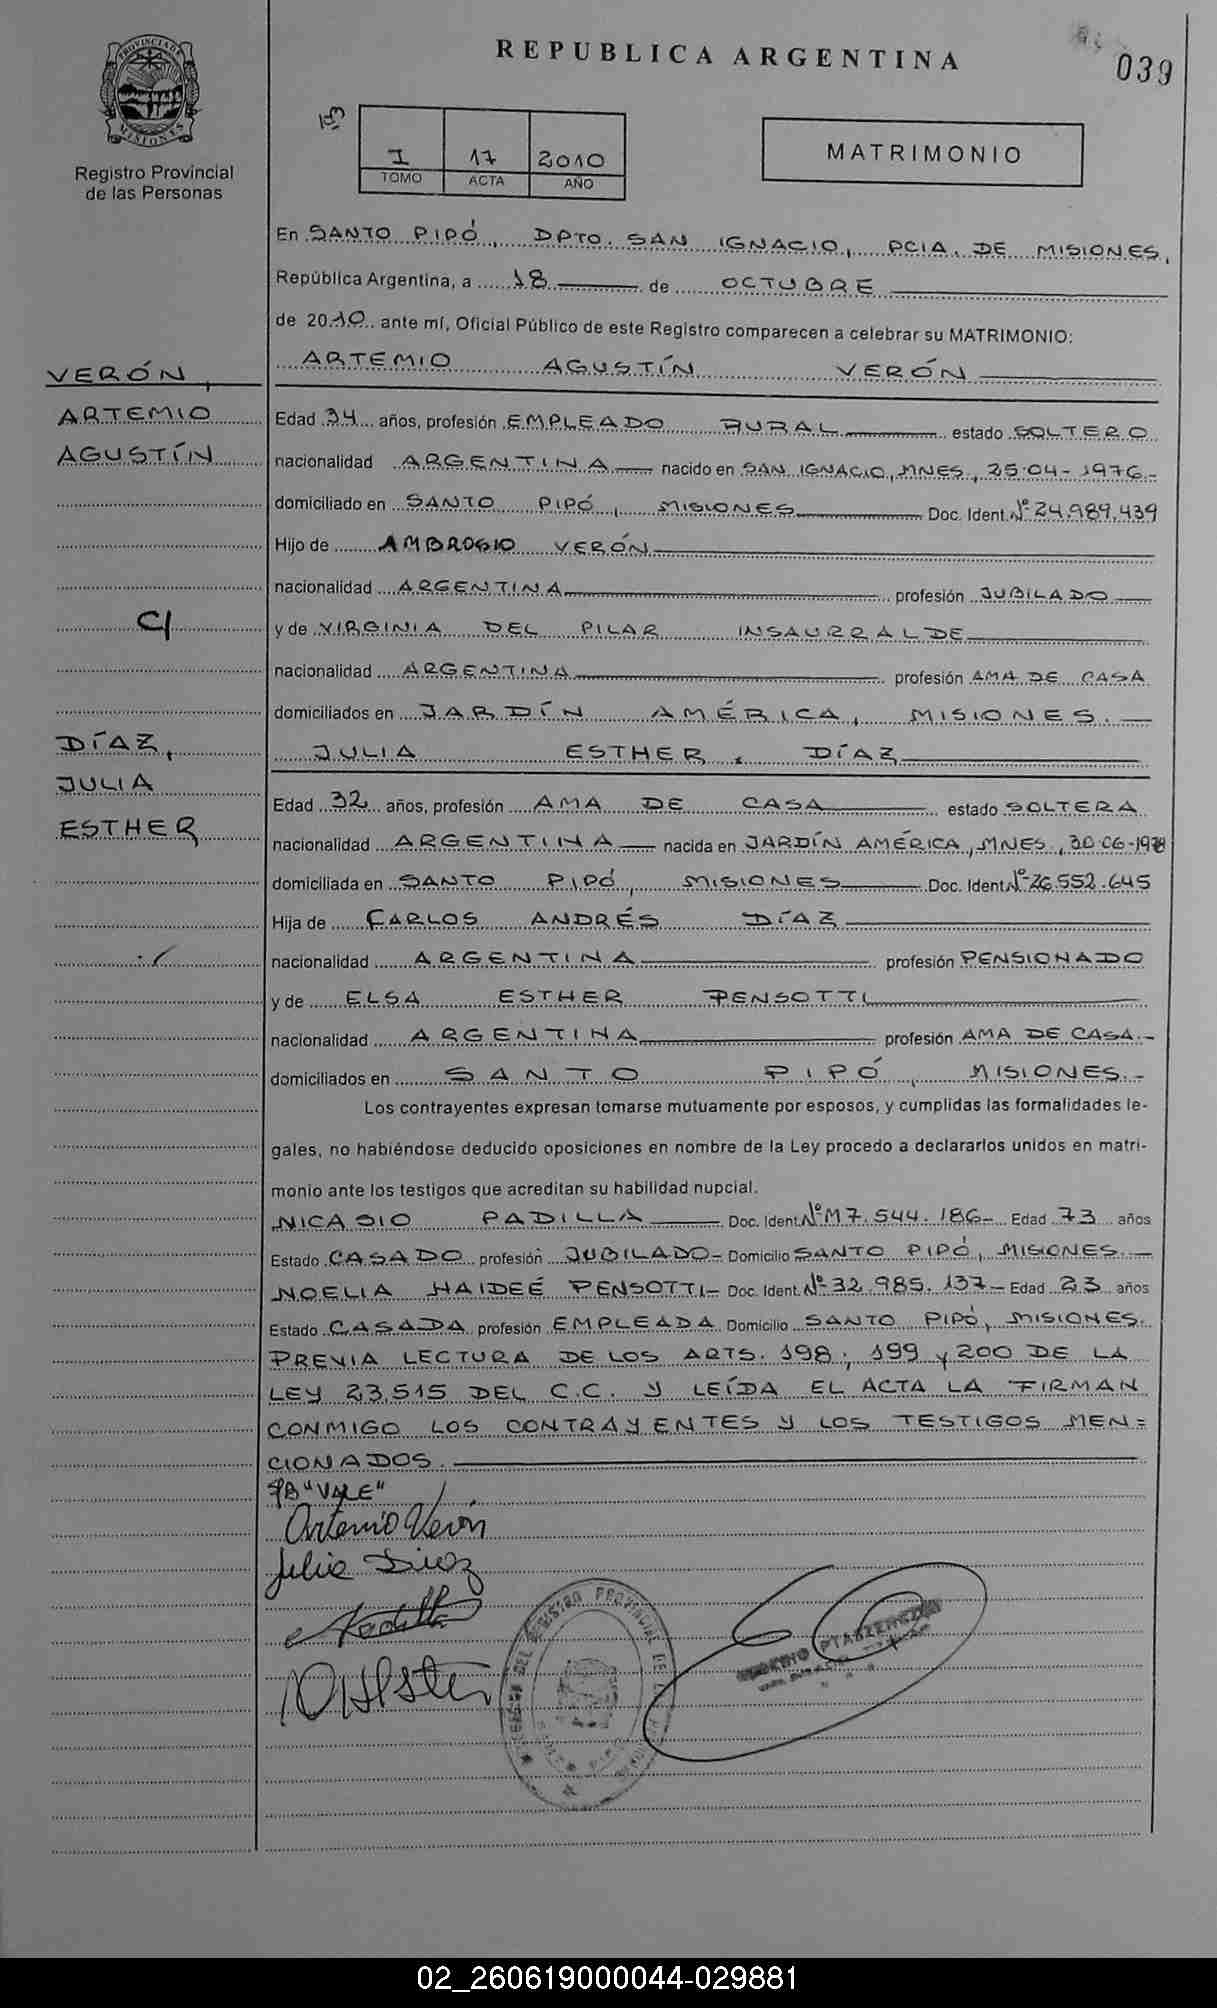 REPUBLICA ARGENTINA
039
PROVINCIA DE
MISIONES
Registro Provincial
de las Personas
I 17 2010
TOMO ACTA AÑO
MATRIMONIO
En SANTO PIPÓ, DPTO. SAN IGNACIO, PCIA. DE MISIONES,
República Argentina, a 18 de OCTUBRE
de 2010 ante mí, Oficial Público de este Registro comparecen a celebrar su MATRIMONIO:
ARTEMIO AGUSTÍN VERÓN
VERÓN,
ARTEMIO
AGUSTÍN
C/
DÍAZ,
JULIA
ESTHER
Edad 34 años, profesión EMPLEADO RURAL estado SOLTERO
nacionalidad ARGENTINA nacido en SAN IGNACIO, MNES., 25-04-1976-
domiciliado en SANTO PIPÓ, MISIONES Doc. Ident. Nº 24.989.439
Hijo de AMBROSIO VERÓN
nacionalidad ARGENTINA profesión JUBILADO
y de VIRGINIA DEL PILAR INSAURRALDE
nacionalidad ARGENTINA profesión AMA DE CASA
domiciliados en JARDÍN AMÉRICA, MISIONES.
JULIA ESTHER DÍAZ
Edad 32 años, profesión AMA DE CASA estado SOLTERA
nacionalidad ARGENTINA nacida en JARDÍN AMÉRICA, MNES., 30-06-1978
domiciliada en SANTO PIPÓ, MISIONES Doc. Ident. Nº 26.552.645
Hija de CARLOS ANDRÉS DÍAZ
nacionalidad ARGENTINA profesión PENSIONADO
y de ELSA ESTHER PENSOTTI
nacionalidad ARGENTINA profesión AMA DE CASA.-
domiciliados en SANTO PIPÓ, MISIONES.-
Los contrayentes expresan tomarse mutuamente por esposos, y cumplidas las formalidades le-
gales, no habiéndose deducido oposiciones en nombre de la Ley procedo a declararlos unidos en matri-
monio ante los testigos que acreditan su habilidad nupcial.
NICASIO PADILLA Doc. Ident. Nº M7.544.186- Edad 73 años
Estado CASADO profesión JUBILADO- Domicilio SANTO PIPÓ, MISIONES.-
NOELIA HAIDEÉ PENSOTTI- Doc. Ident. Nº 32.985.137- Edad 23 años
Estado CASADA profesión EMPLEADA Domicilio SANTO PIPÓ, MISIONES.
PREVIA LECTURA DE LOS ARTS. 198, 199 y 200 DE LA
LEY 23.515 DEL C.C. Y LEÍDA EL ACTA LA FIRMAN
CONMIGO LOS CONTRAYENTES Y LOS TESTIGOS MEN=
CIONADOS.
"VALE"
Artemio Verón
Julia Diaz
02_260619000044-029881